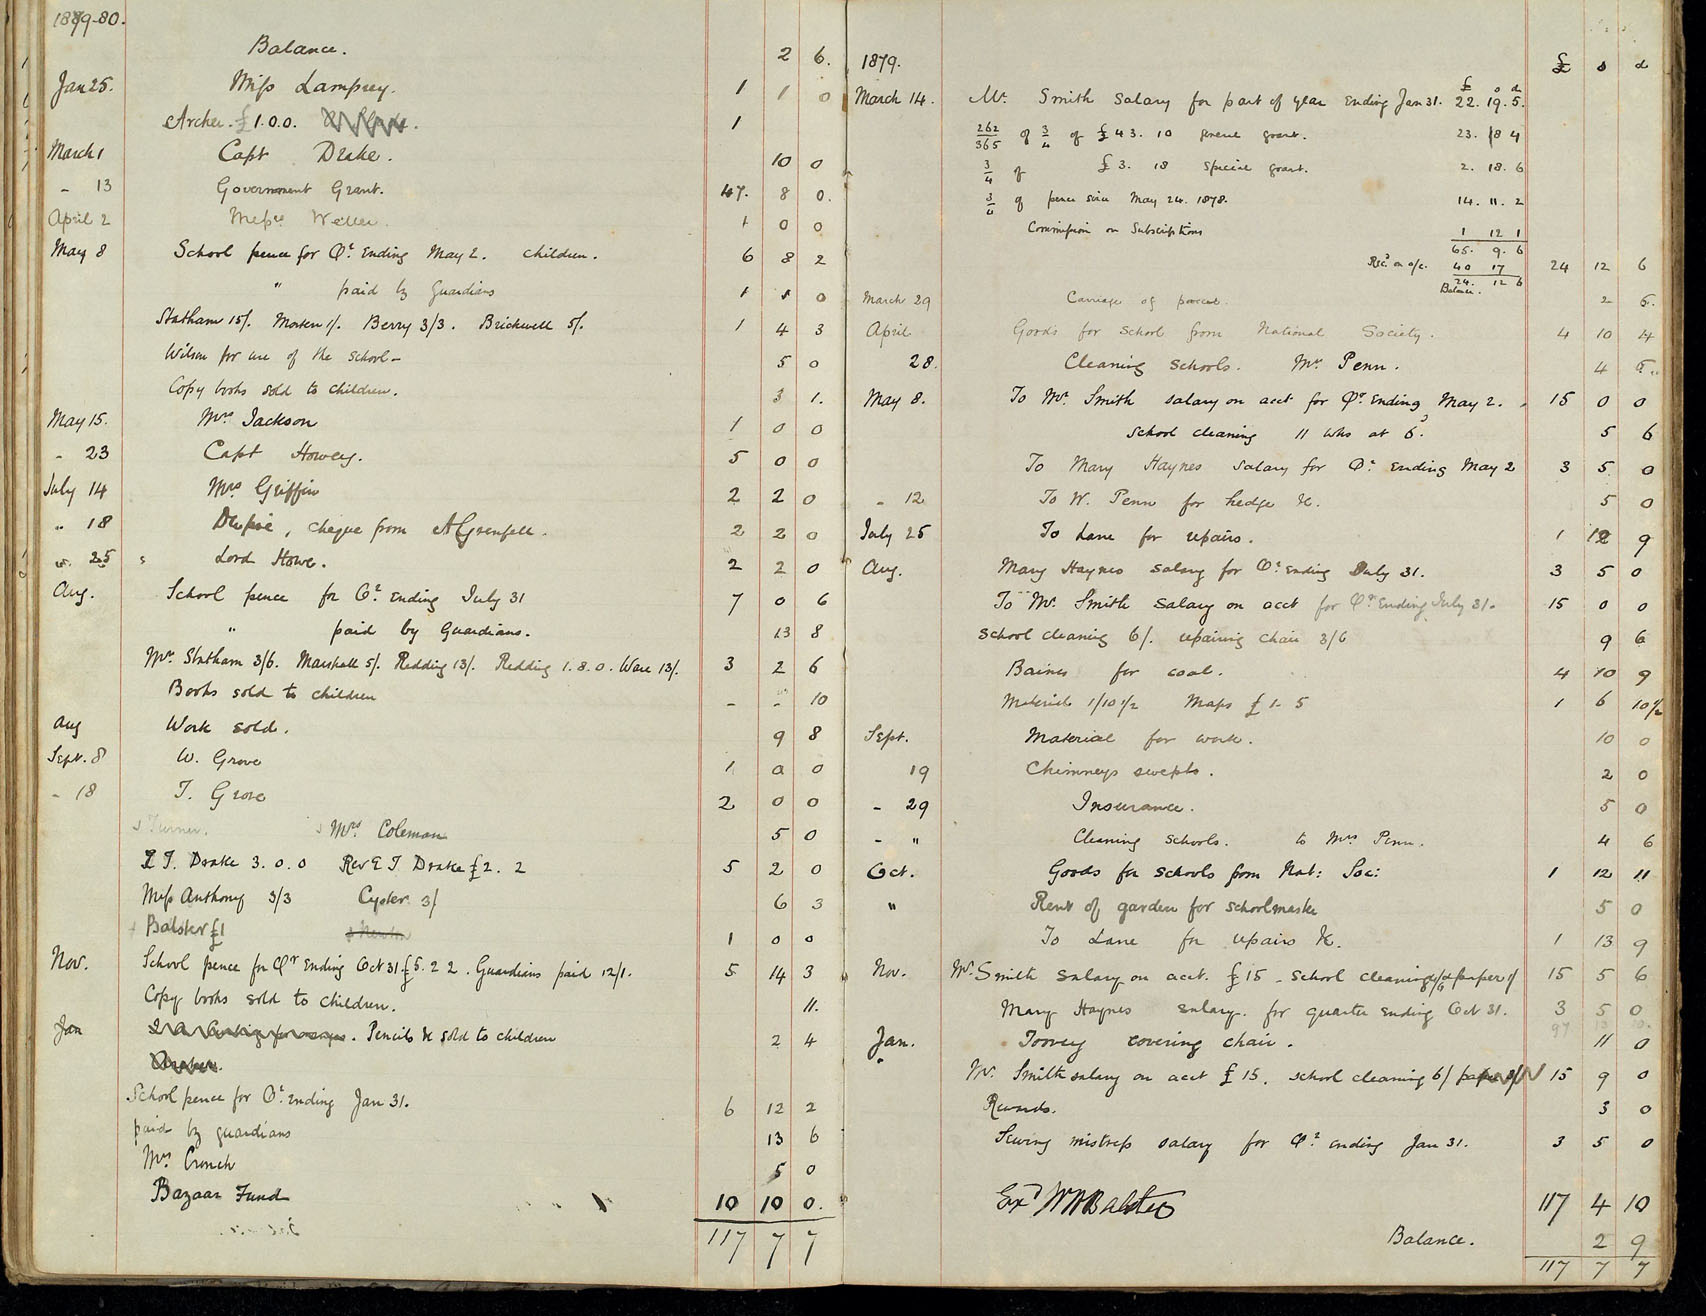 1879-80.
Balance. 2 6.
Jan 25. Miss Lamprey. 1 1 0
Archer. £1.0.0. 1
March 1 Capt Drake. 10 0
- 13 Government Grant. 47. 8 0.
April 2 Messrs Weller. 1 0 0
May 8 School pence for Qr. Ending May 2. children. 6 8 2
" paid by Guardians 1 1 0
Statham 15/. Morten 1/. Berry 3/3. Brickwell 5/. 1 4 3
Wilson for use of the school - 5 0
Copy books sold to children. 3 1.
May 15. Mrs. Jackson 1 0 0
- 23 Capt Howey. 5 0 0
July 14 Mrs Griffin 2 2 0
" 18 , cheque from A Grenfell. 2 2 0
" 25 Lord Howe. 2 2 0
Aug. School pence for Qr. ending July 31 7 0 6
" paid by Guardians. 13 8
Mr. Statham 3/6. Marshall 5/. Redding 13/. Redding 1.8.0. Ware 13/. 3 2 6
Books sold to children - - 10
Aug Work sold. 9 8
Sept. 8 W. Grove 1 0 0
- 18 T. Grove 2 0 0
s Turner. s Mrs Coleman 5 0
T. Drake 3.0.0 Rev E T Drake £2. 2 5 2 0
Miss Anthony 3/3 Cyster 3/ 6 3
Balster £1 1 0 0
Nov. School pence for Qr Ending Oct 31 £5. 2 2. Guardians paid 12/1. 5 14 3
Copy books sold to children. 11.
Jan . Pencils &c sold to children 2 4
School pence for Qr. Ending Jan 31. 6 12 2
paid by guardians 13 6
Mrs. Crouch 5 0
Bazaar Fund 10 10 0.
117 7 7
1879. £ s d
£ s d
March 14. Mr. Smith Salary for part of year Ending Jan 31. 22. 19. 5.
262/365 of 3/4 of £43. 10 general grant. 23. 8 4
3/4 of £3. 18 Special grant. 2. 18. 6
3/4 of pence since May 24. 1878. 14. 11. 2
Commission on Subscriptions 1 12 1
65. 9. 6
Recd. on a/c. 40 17 24 12 6
24. 12 6
Balance.
March 29 Carriage of parcel. 2 6.
April Goods for School from National Society. 4 10 4
28. Cleaning Schools. Mrs. Penn. 4 6..
May 8. To Mr. Smith salary on acct for Qr. Ending May 2. 15 0 0
School cleaning 11 wks at 6d. 5 6
To Mary Haynes Salary for Qr. Ending May 2 3 5 0
- 12 To W. Penn for hedge &c. 5 0
July 25 To Lane for repairs. 1 12 9
Aug. Mary Haynes salary for Qr. Ending July 31. 3 5 0
To Mr. Smith Salary on acct for Qr Ending July 31. 15 0 0
School cleaning 6/. repairing chair 3/6 9 6
Baines for coal. 4 10 9
Materials 1/10 1/2 Maps £1- 5 1 6 10 1/2
Sept. Material for work. 10 0
19 Chimneys swept. 2 0
- 29 Insurance. 5 0
- " Cleaning Schools. to Mrs Penn. 4 6
Oct. Goods for Schools from Nat: Soc: 1 12 11
" Rent of garden for schoolmaster 5 0
To Lane for repairs &c. 1 13 9
Nov. Mr. Smith salary on acct. £15 - School cleaning paper 1/ 15 5 6
Mary Haynes Salary. for quarter ending Oct 31. 3 5 0
Jan. Toovey covering chair. 11 0
Mr. Smith salary on acct £15. School cleaning 6/ 15 9 0
Rewards. 3 0
Sewing mistress salary for Qr. ending Jan 31. 3 5 0
Exd W H Balster 117 4 10
Balance. 2 9
117 7 7